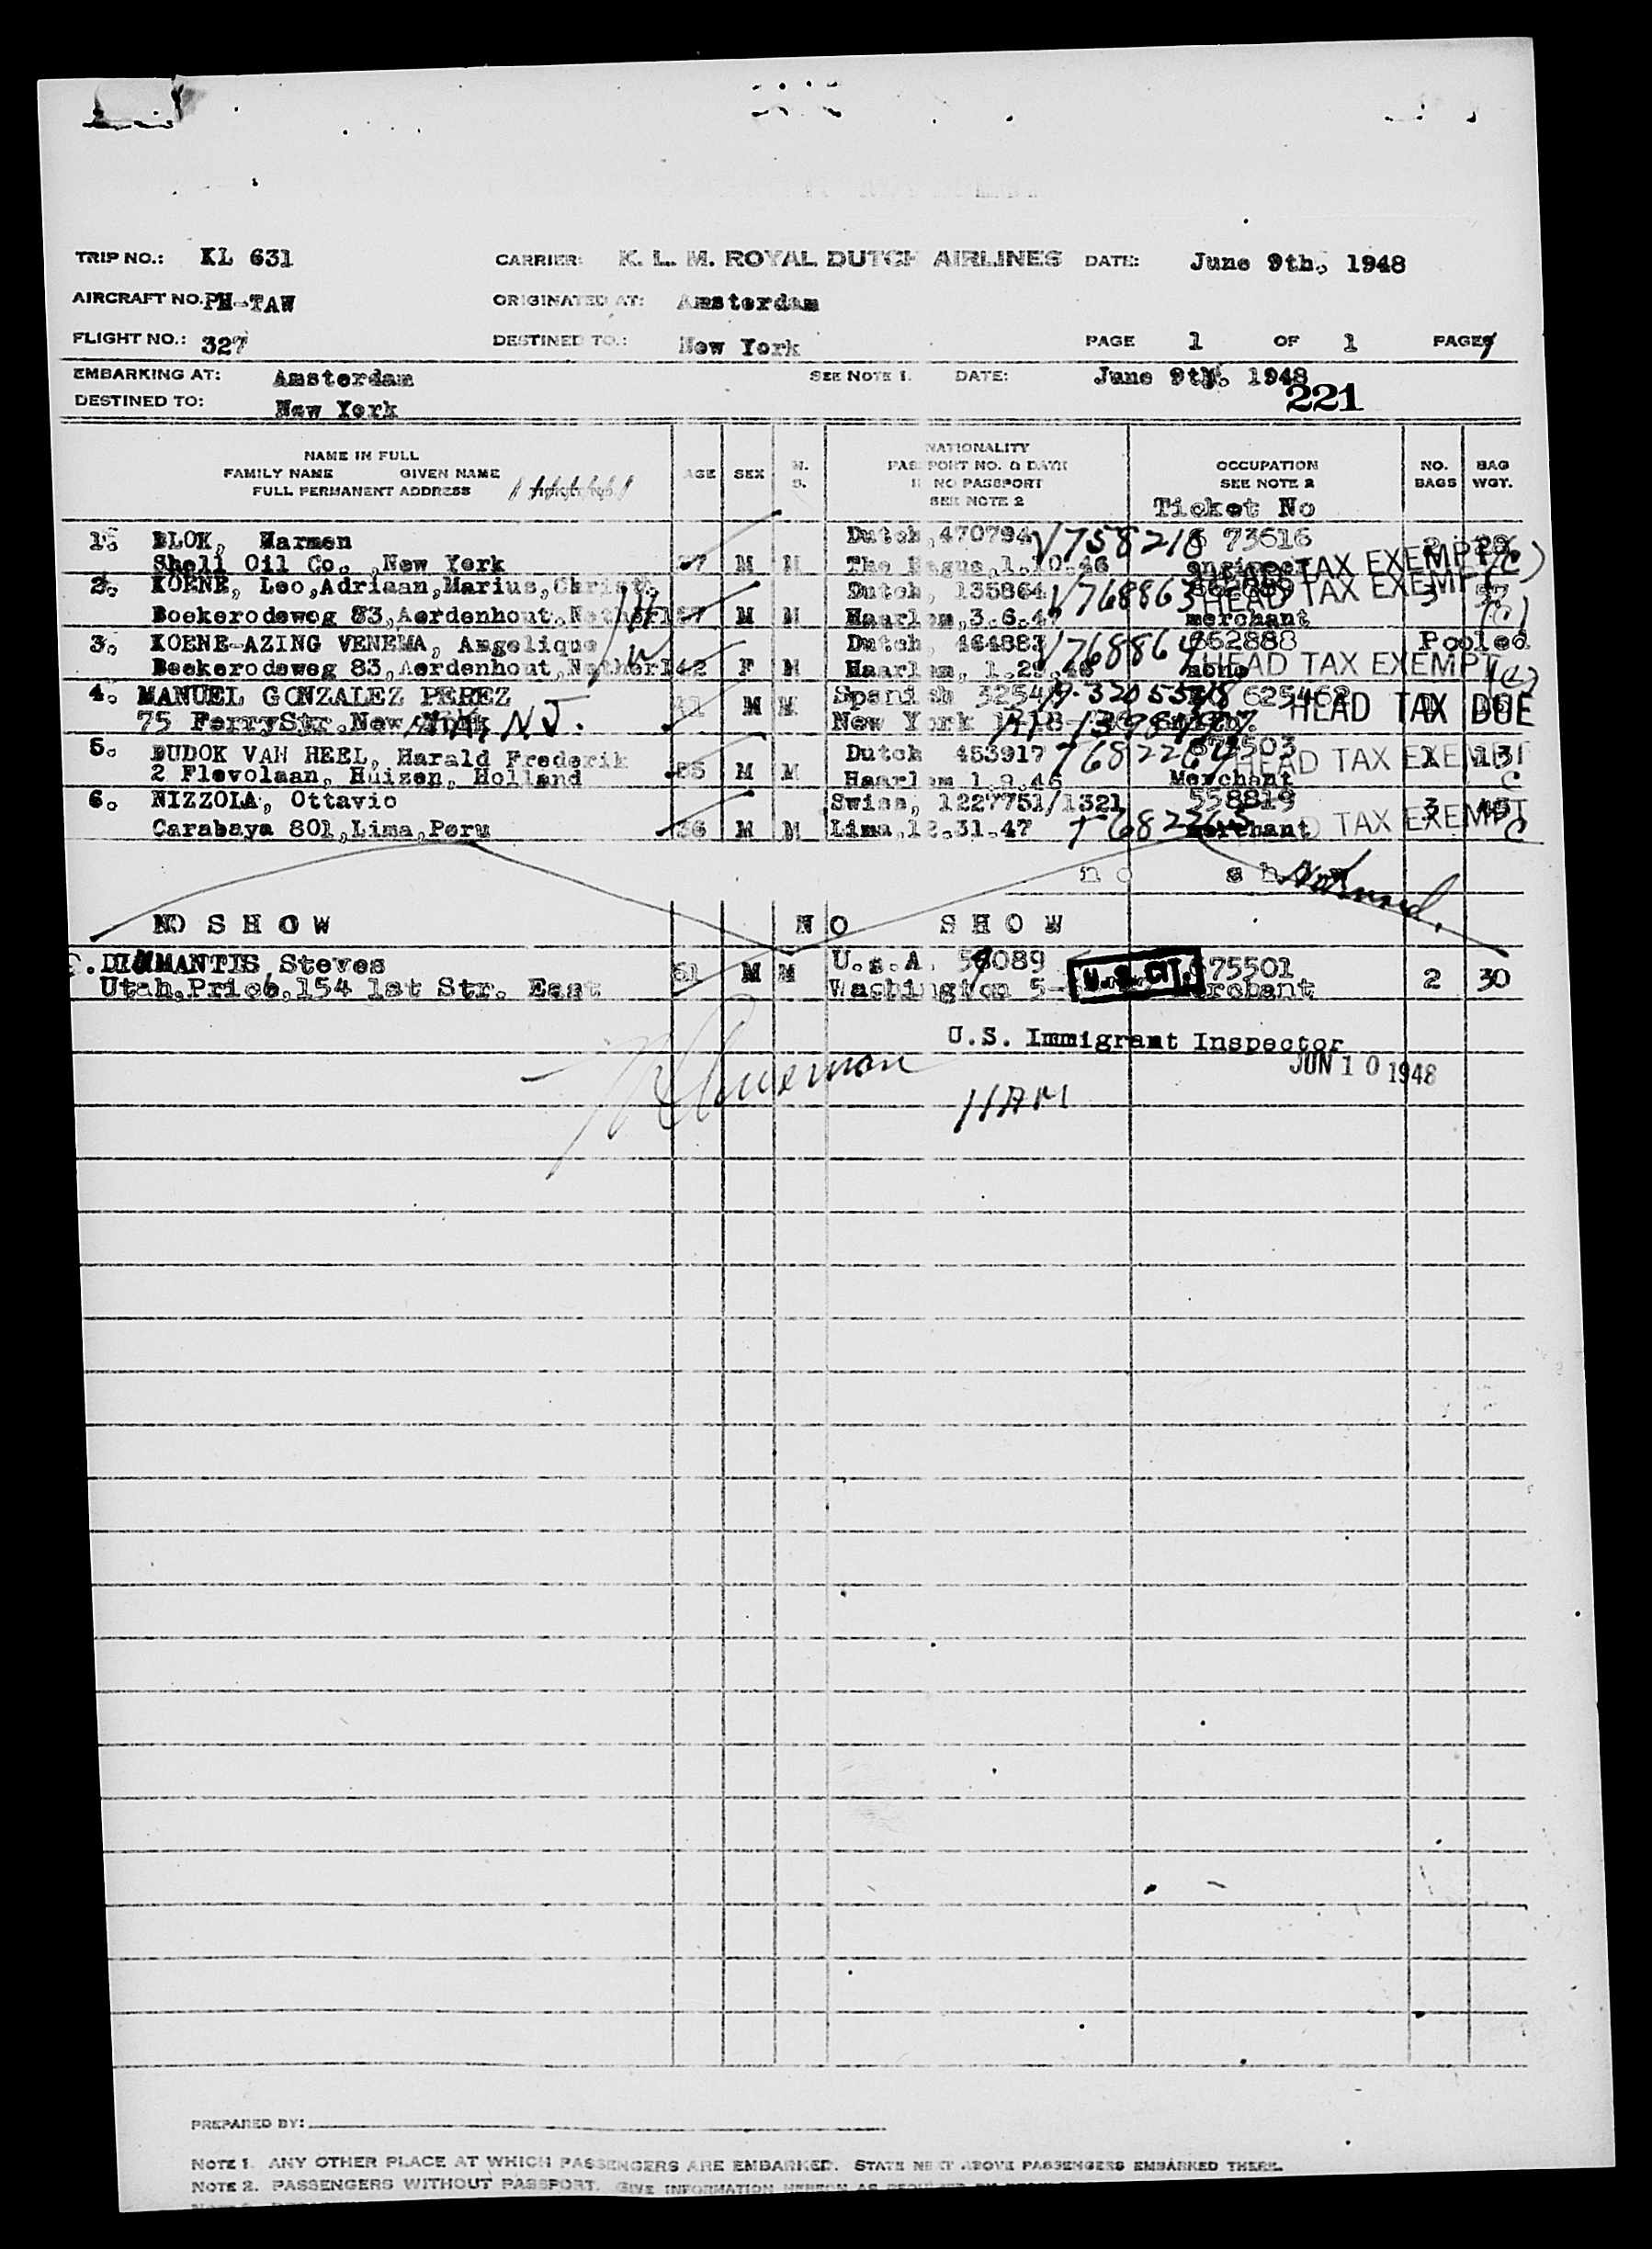 TRIP NO.: KL 631 CARRIER: K. L. M. ROYAL DUTCH AIRLINES DATE: June 9th, 1948
AIRCRAFT NO. PH-TAW ORIGINATED AT: Amsterdam
FLIGHT NO.: 327 DESTINED TO.: New York PAGE 1 OF 1 PAGES
EMBARKING AT: Amsterdam SEE NOTE 1. DATE: June 9th. 1948
DESTINED TO: New York 221
NAME IN FULL
FAMILY NAME GIVEN NAME
FULL PERMANENT ADDRESS
AGE SEX M. S.
NATIONALITY
PASSPORT NO. & DATE
IF NO PASSPORT
SEE NOTE 2
OCCUPATION
SEE NOTE 2
Ticket No
NO. BAGS
BAG WGT.
1. BLOK, Harmen Dutch, 470794 V758216 73616 2
Shell Oil Co. ,New York M M The Hague, 1.10.46 engineer HEAD TAX EXEMPT (c)
2. KOENE, Leo,Adriaan,Marius,Christ. Dutch, 135864 V768863 HEAD TAX EXEMPT (c)
Boekerodeweg 83,Aerdenhout,Netherl 57 M M Haarlem,3.6.47 merchant 3 57
3. KOENE-AZING VENEMA, Angelique Dutch, 464883 V768864 862888 Pooled
Beekerodeweg 83,Aerdenhout,Netherl 42 F M Haarlem, 1.29.48 none HEAD TAX EXEMPT (c)
4. MANUEL GONZALEZ PEREZ 41 M M Spanish 625462 HEAD TAX DUE
75 FerryStr.New N.J. New York
5. DUDOK VAN HEEL, Harald Frederik Dutch 453917 7682264 HEAD TAX EXEMPT
2 Flevolaan, Huizen, Holland 35 M M Haarlem 1.9.46 Merchant 1 13 C
6. NIZZOLA, Ottavio Swiss, 1227751/1321 558819 3 45
Carabaya 801,Lima,Peru 36 M M Lima,12.31.47 merchant HEAD TAX EXEMPT C
no show
NO SHOW NO SHOW
DIAMANTIS, Steves 61 M M U.S.A. U.S. CIT. 75501
Utah,Price,154 1st Str. East Washington merchant 2 30
U.S. Immigrant Inspector
JUN 10 1948
11AM
PREPARED BY:
NOTE 1. ANY OTHER PLACE AT WHICH PASSENGERS ARE EMBARKED. STATE NEXT ABOVE PASSENGERS EMBARKED THERE.
NOTE 2. PASSENGERS WITHOUT PASSPORT. GIVE INFORMATION HEREON AS REQUIRED